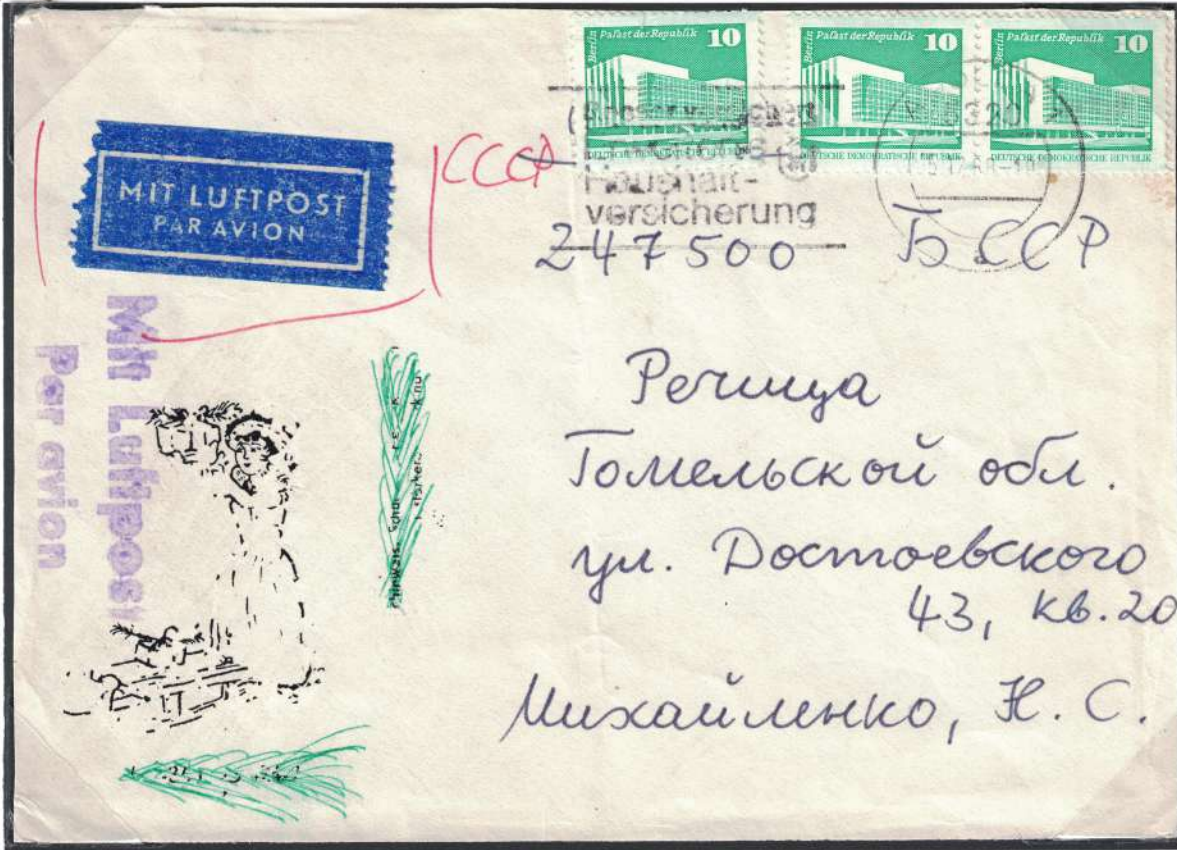 Berlin Palast der Republik 10
DEUTSCHE DEMOKRATISCHE REPUBLIK
Berlin Palast der Republik 10
DEUTSCHE DEMOKRATISCHE REPUBLIK
Berlin Palast der Republik 10
DEUTSCHE DEMOKRATISCHE REPUBLIK
Haushalt-
versicherung
MIT LUFTPOST
PAR AVION
СССР
Mit Luftpost
Par avion
247500 БССР
Речица
Гомельской обл.
ул. Достоевского
43, кв. 20
Михайленко, Н. С.